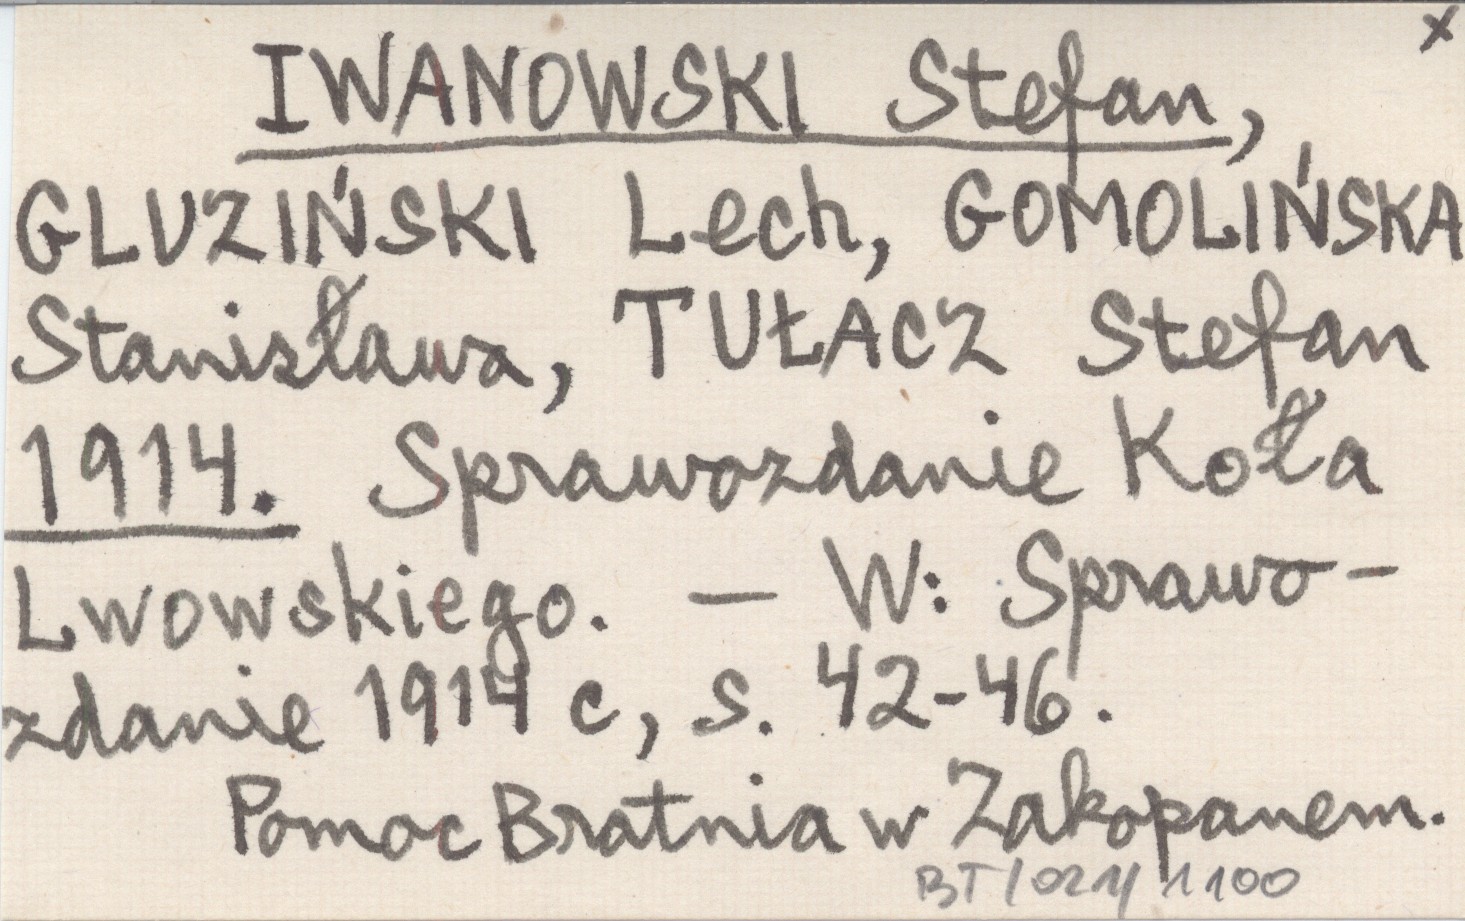 x
IWANOWSKI Stefan,
GLUZIŃSKI Lech, GOMOLIŃSKA
Stanisława, TUŁACZ Stefan
1914. Sprawozdanie Koła
Lwowskiego. — W: Sprawo-
zdanie 1914 c, s. 42-46.
Pomoc Bratnia w Zakopanem.
BT/021/1100